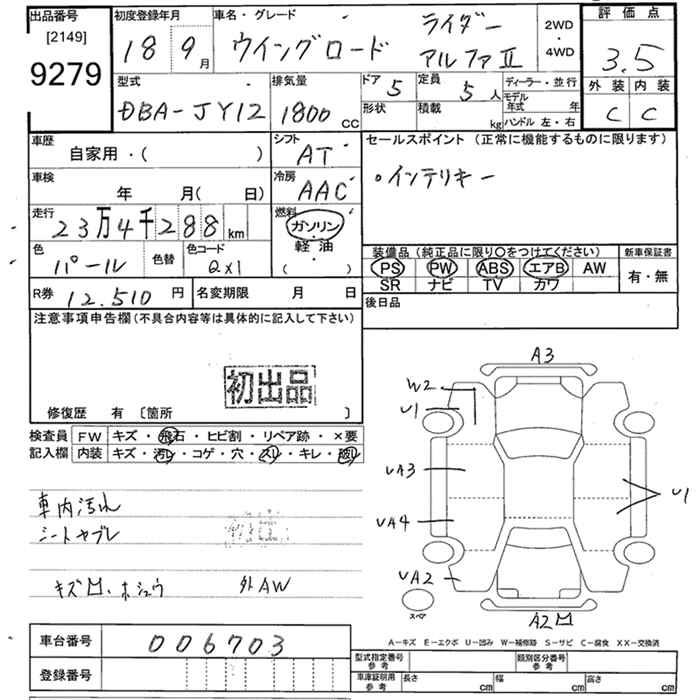 出品番号
[2149]
9279
初度登録年月
18 9月
車名・グレード
ウイングロード ライダー アルファⅡ
2WD
・
4WD
評価点
3.5
外装 内装
C C
型式
DBA-JY12
排気量
1800 CC
ドア 5
形状
定員 5 人
積載 kg
ディーラー・並行
モデル年式 年
ハンドル 左・右
車歴
自家用・( )
シフト
AT
車検
年 月( 日)
冷房
AAC
走行
23万4千288km
燃料
ガソリン
軽油
( )
色
パール
色替
色コード
QX1
R券 12.510 円
名変期限 月 日
セールスポイント(正常に機能するものに限ります)
○インテリキー
装備品(純正品に限り○をつけてください)
PS PW ABS エアB AW
SR ナビ TV カワ
新車保証書
有・無
後日品
注意事項申告欄(不具合内容等は具体的に記入して下さい)
初出品
修復歴 有 〔箇所 〕
検査員 FW キズ・飛石・ヒビ割・リペア跡・×要
記入欄 内装 キズ・汚レ・コゲ・穴・スレ・キレ・
車内汚れ
シートヤブレ
キズ凹、ホシュウ 外AW
A3
W2
U1
UA3
UA4
UA2
U1
スペア
A2凹
A-キズ E-エクボ U-凹み W-補修跡 S-サビ C-腐食 XX-交換済
車台番号 006703
登録番号
型式指定番号 参考
類別区分番号 参考
車庫証明用 参考 長さ cm 幅 cm 高さ cm